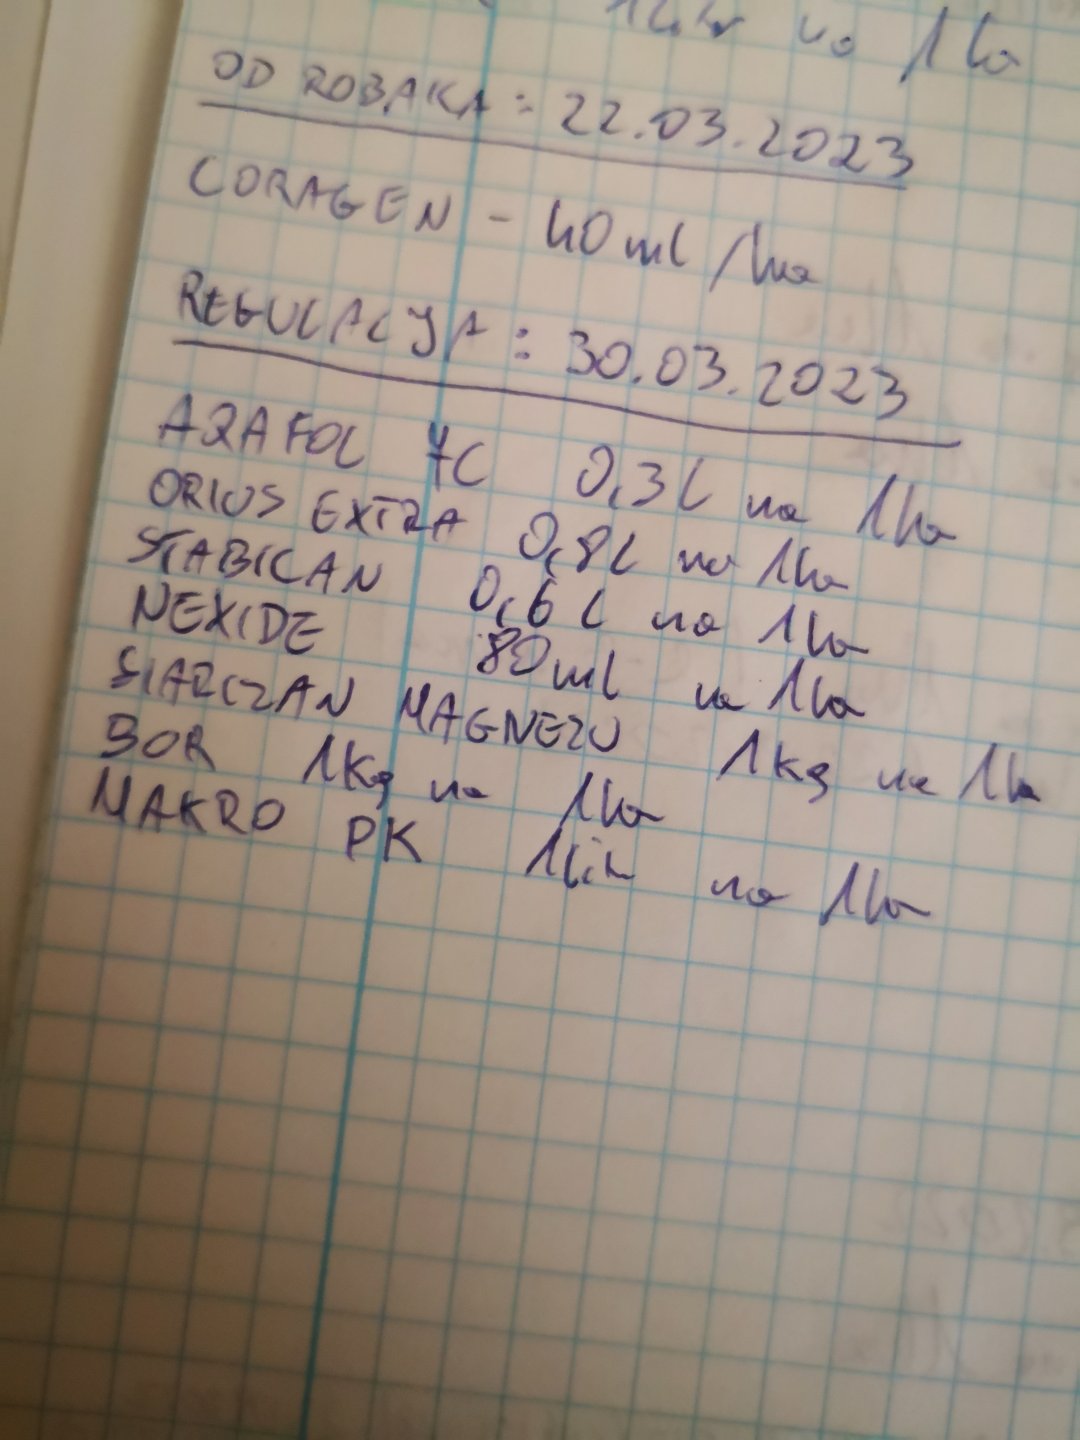 na 1ha
OD ROBAKA : 22.03.2023
CORAGEN - 40 ml /ha
REGULACJA : 30.03.2023
ARAFOL 7C 0,3 L na 1ha
ORIUS EXTRA 0,8 L na 1ha
STABILAN 0,6 L na 1ha
NEXIDE 80 ml na 1ha
SIARCZAN MAGNEZU 1 kg na 1ha
BOR 1 kg na 1ha
MAKRO PK 1 litr na 1ha